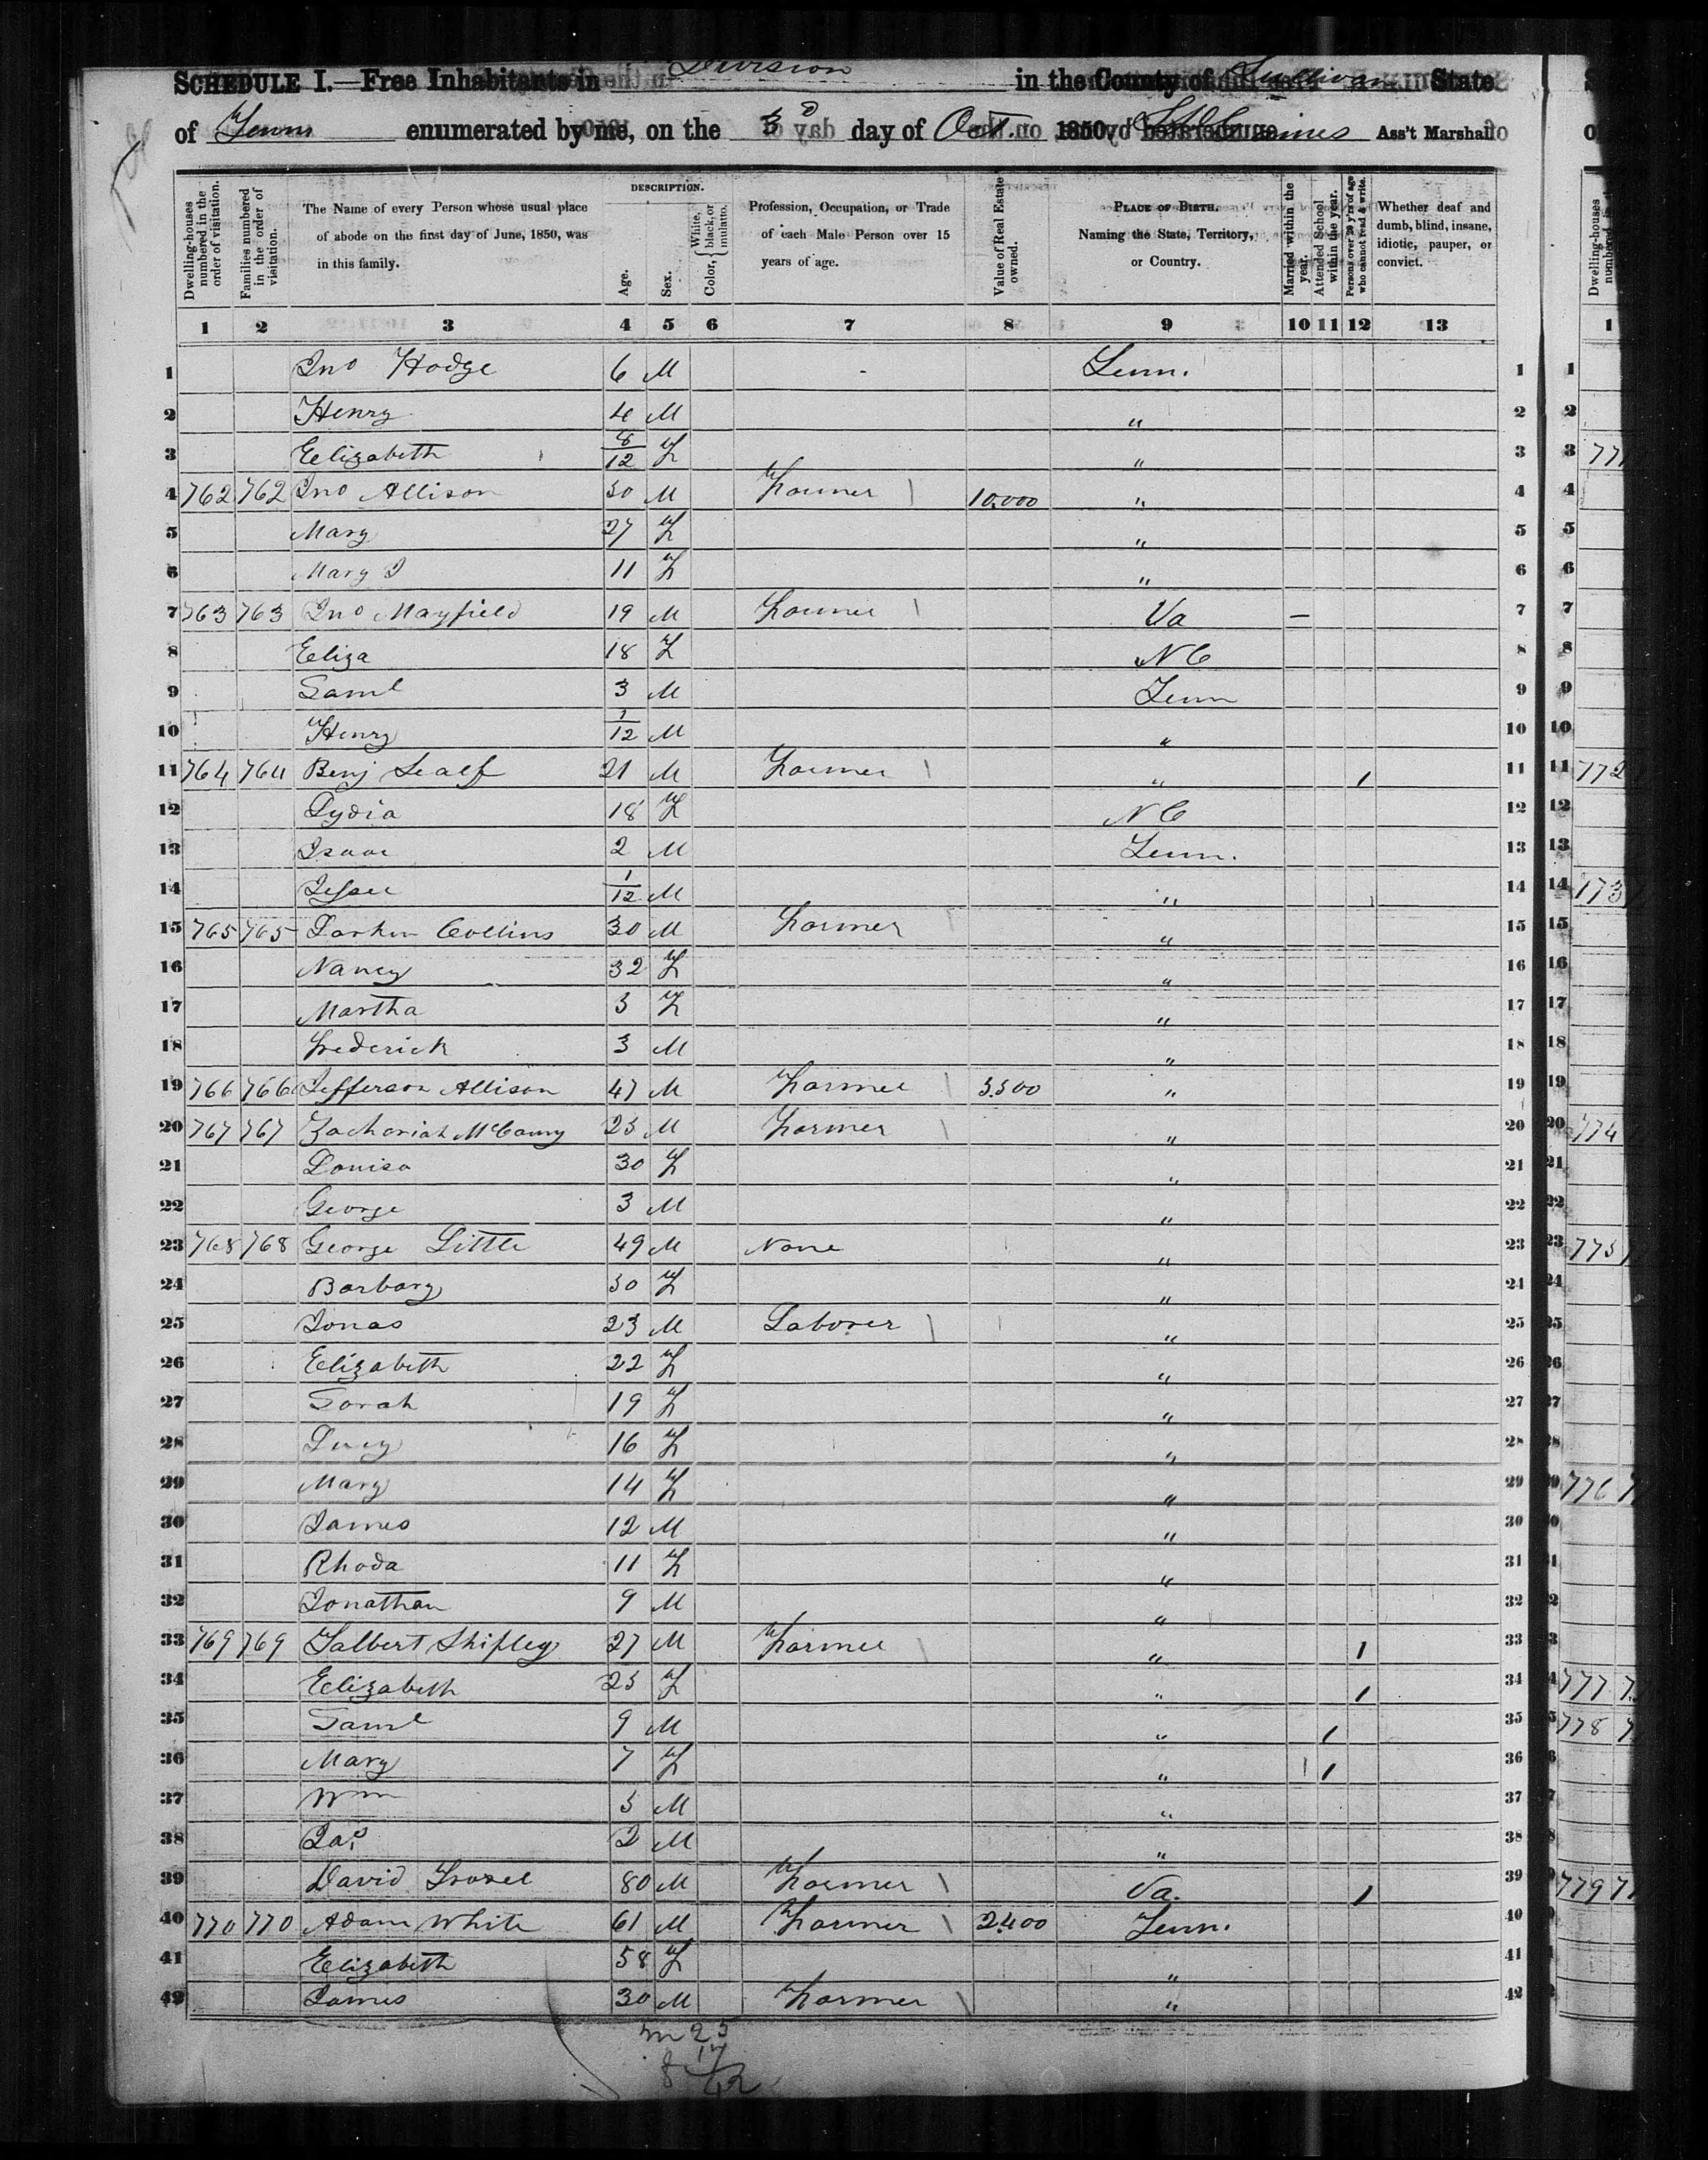 SCHEDULE I.—Free Inhabitants in Division in the County of Sullivan State
of Tenn enumerated by me, on the 3d day of Oct. 1850. Ass't Marshal
DESCRIPTION.
Dwelling-houses numbered in the order of visitation.
Families numbered in the order of visitation.
The Name of every Person whose usual place of abode on the first day of June, 1850, was in this family.
Age.
Sex.
Color, White, black, or mulatto.
Profession, Occupation, or Trade of each Male Person over 15 years of age.
Value of Real Estate owned.
PLACE OF BIRTH. Naming the State, Territory, or Country.
Married within the year.
Attended School within the year.
Persons over 20 y'rs of age who cannot read & write.
Whether deaf and dumb, blind, insane, idiotic, pauper, or convict.
1 2 3 4 5 6 7 8 9 10 11 12 13
1 Jno Hodge 6 M Tenn. 1
2 Henry 4 M " 2
3 Elizabeth 8/12 F " 3
4 762 762 Jno Allison 30 M Farmer 10,000 " 4
5 Mary 27 F " 5
6 Mary J 11 F " 6
7 763 763 Jno Mayfield 19 M Farmer Va – 7
8 Eliza 18 F N C 8
9 Saml 3 M Tenn 9
10 Henry 1/12 M " 10
11 764 764 Benj Scalf 21 M Farmer " 1 11
12 Lydia 18 F N C 12
13 Isaac 2 M Tenn. 13
14 Jesse 1/12 M " 14
15 765 765 Larkin Collins 30 M Farmer " 15
16 Nancy 32 F " 16
17 Martha 5 F " 17
18 Frederick 3 M " 18
19 766 766 Jefferson Allison 47 M Farmer 3,500 " 19
20 767 767 Zachariah McCamy 25 M Farmer " 20
21 Louisa 30 F " 21
22 George 3 M " 22
23 768 768 George Little 49 M None " 23
24 Barbary 50 F " 24
25 Jonas 23 M Laborer " 25
26 Elizabeth 22 F " 26
27 Sarah 19 F " 27
28 Lucy 16 F " 28
29 Mary 14 F " 29
30 James 12 M " 30
31 Rhoda 11 F " 31
32 Jonathan 9 M " 32
33 769 769 Talbert Shipley 27 M Farmer " 1 33
34 Elizabeth 25 F " 1 34
35 Saml 9 M " 1 35
36 Mary 7 F " 1 36
37 Wm 5 M " 37
38 Jas 2 M " 38
39 David 80 M Farmer Va. 1 39
40 770 770 Adam White 61 M Farmer 2400 Tenn. 40
41 Elizabeth 58 F " 41
42 James 30 M Farmer " 42
m 25
f 17
42